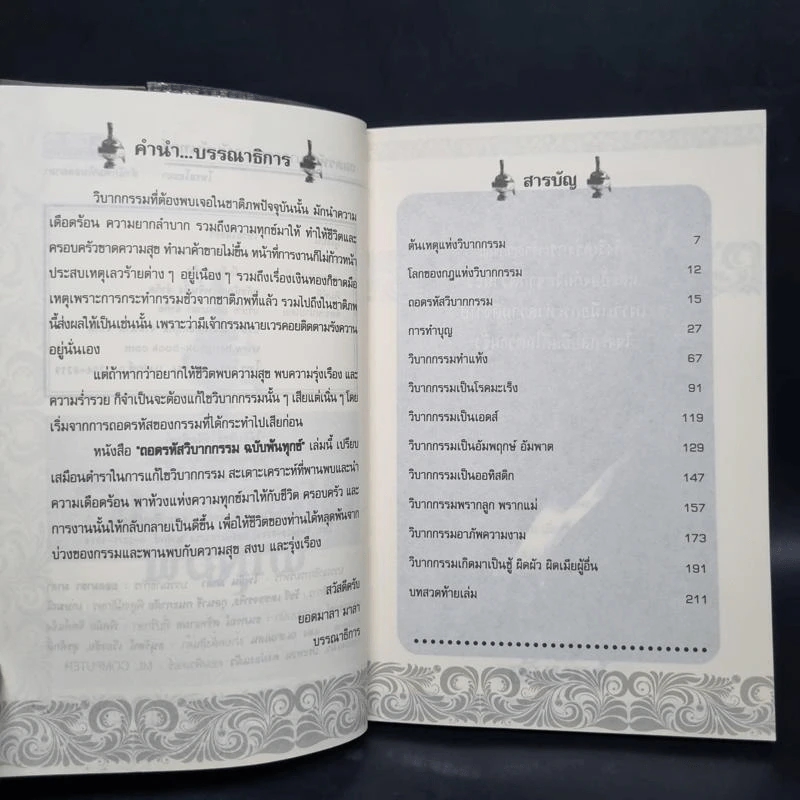 คำนำ...บรรณาธิการ
วิบากกรรมที่ต้องพบเจอในชาติภพปัจจุบันนั้น มักนำความ
เดือดร้อน ความยากลำบาก รวมถึงความทุกข์มาให้ ทำให้ชีวิตและ
ครอบครัวขาดความสุข ทำมาค้าขายไม่ขึ้น หน้าที่การงานก็ไม่ก้าวหน้า
ประสบเหตุเลวร้ายต่าง ๆ อยู่เนือง ๆ รวมถึงเรื่องเงินทองก็ขาดมือ
เหตุเพราะการกระทำกรรมชั่วจากชาติภพที่แล้ว รวมไปถึงในชาติภพ
นี้ส่งผลให้เป็นเช่นนั้น เพราะว่ามีเจ้ากรรมนายเวรคอยติดตามรังควาน
อยู่นั่นเอง
แต่ถ้าหากว่าอยากให้ชีวิตพบความสุข พบความรุ่งเรือง และ
ความร่ำรวย ก็จำเป็นจะต้องแก้ไขวิบากกรรมนั้น ๆ เสียแต่เนิ่น ๆ โดย
เริ่มจากการถอดรหัสของกรรมที่ได้กระทำไปเสียก่อน
หนังสือ "ถอดรหัสวิบากกรรม ฉบับพ้นทุกข์" เล่มนี้ เปรียบ
เสมือนตำราในการแก้ไขวิบากกรรม สะเดาะเคราะห์ที่พานพบและนำ
ความเดือดร้อน พาห้วงแห่งความทุกข์มาให้กับชีวิต ครอบครัว และ
การงานนั้นให้กลับกลายเป็นดีขึ้น เพื่อให้ชีวิตของท่านได้หลุดพ้นจาก
บ่วงของกรรมและพานพบกับความสุข สงบ และรุ่งเรือง
สวัสดีครับ
ยอดมาลา มาลา
บรรณาธิการ
สารบัญ
ต้นเหตุแห่งวิบากกรรม 7
โลกของกฎแห่งวิบากกรรม 12
ถอดรหัสวิบากกรรม 15
การทำบุญ 27
วิบากกรรมทำแท้ง 67
วิบากกรรมเป็นโรคมะเร็ง 91
วิบากกรรมเป็นเอดส์ 119
วิบากกรรมเป็นอัมพฤกษ์ อัมพาต 129
วิบากกรรมเป็นออทิสติก 147
วิบากกรรมพรากลูก พรากแม่ 157
วิบากกรรมอาภัพความงาม 173
วิบากกรรมเกิดมาเป็นชู้ ผิดผัว ผิดเมียผู้อื่น 191
บทสวดท้ายเล่ม 211